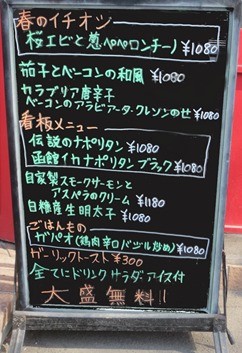 春のイチオシ
桜エビと葱ペペロンチーノ ¥1080
茄子とベーコンの和風 ¥1080
カラブリア唐辛子
ベーコンのアラビアータ・クレソンのせ ¥1080
看板メニュー
伝説のナポリタン ¥1080
函館イカナポリタンブラック ¥1080
自家製スモークサーモンと
アスペラのクリーム ¥1180
白糠産生明太子 ¥1080
ごはんもの
ガパオ(鶏肉辛口バジル炒め) ¥1080
ガーリックトースト ¥300
全てにドリンク サラダ アイス付
大盛無料!!